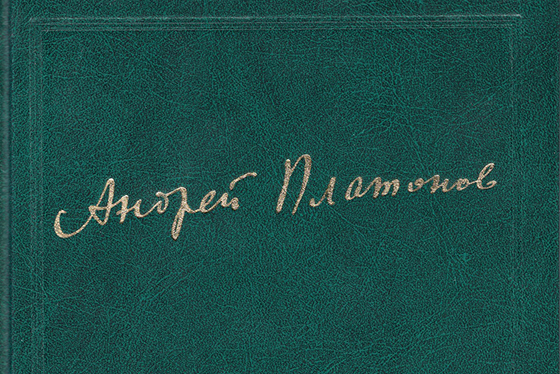 Андрей Платонов